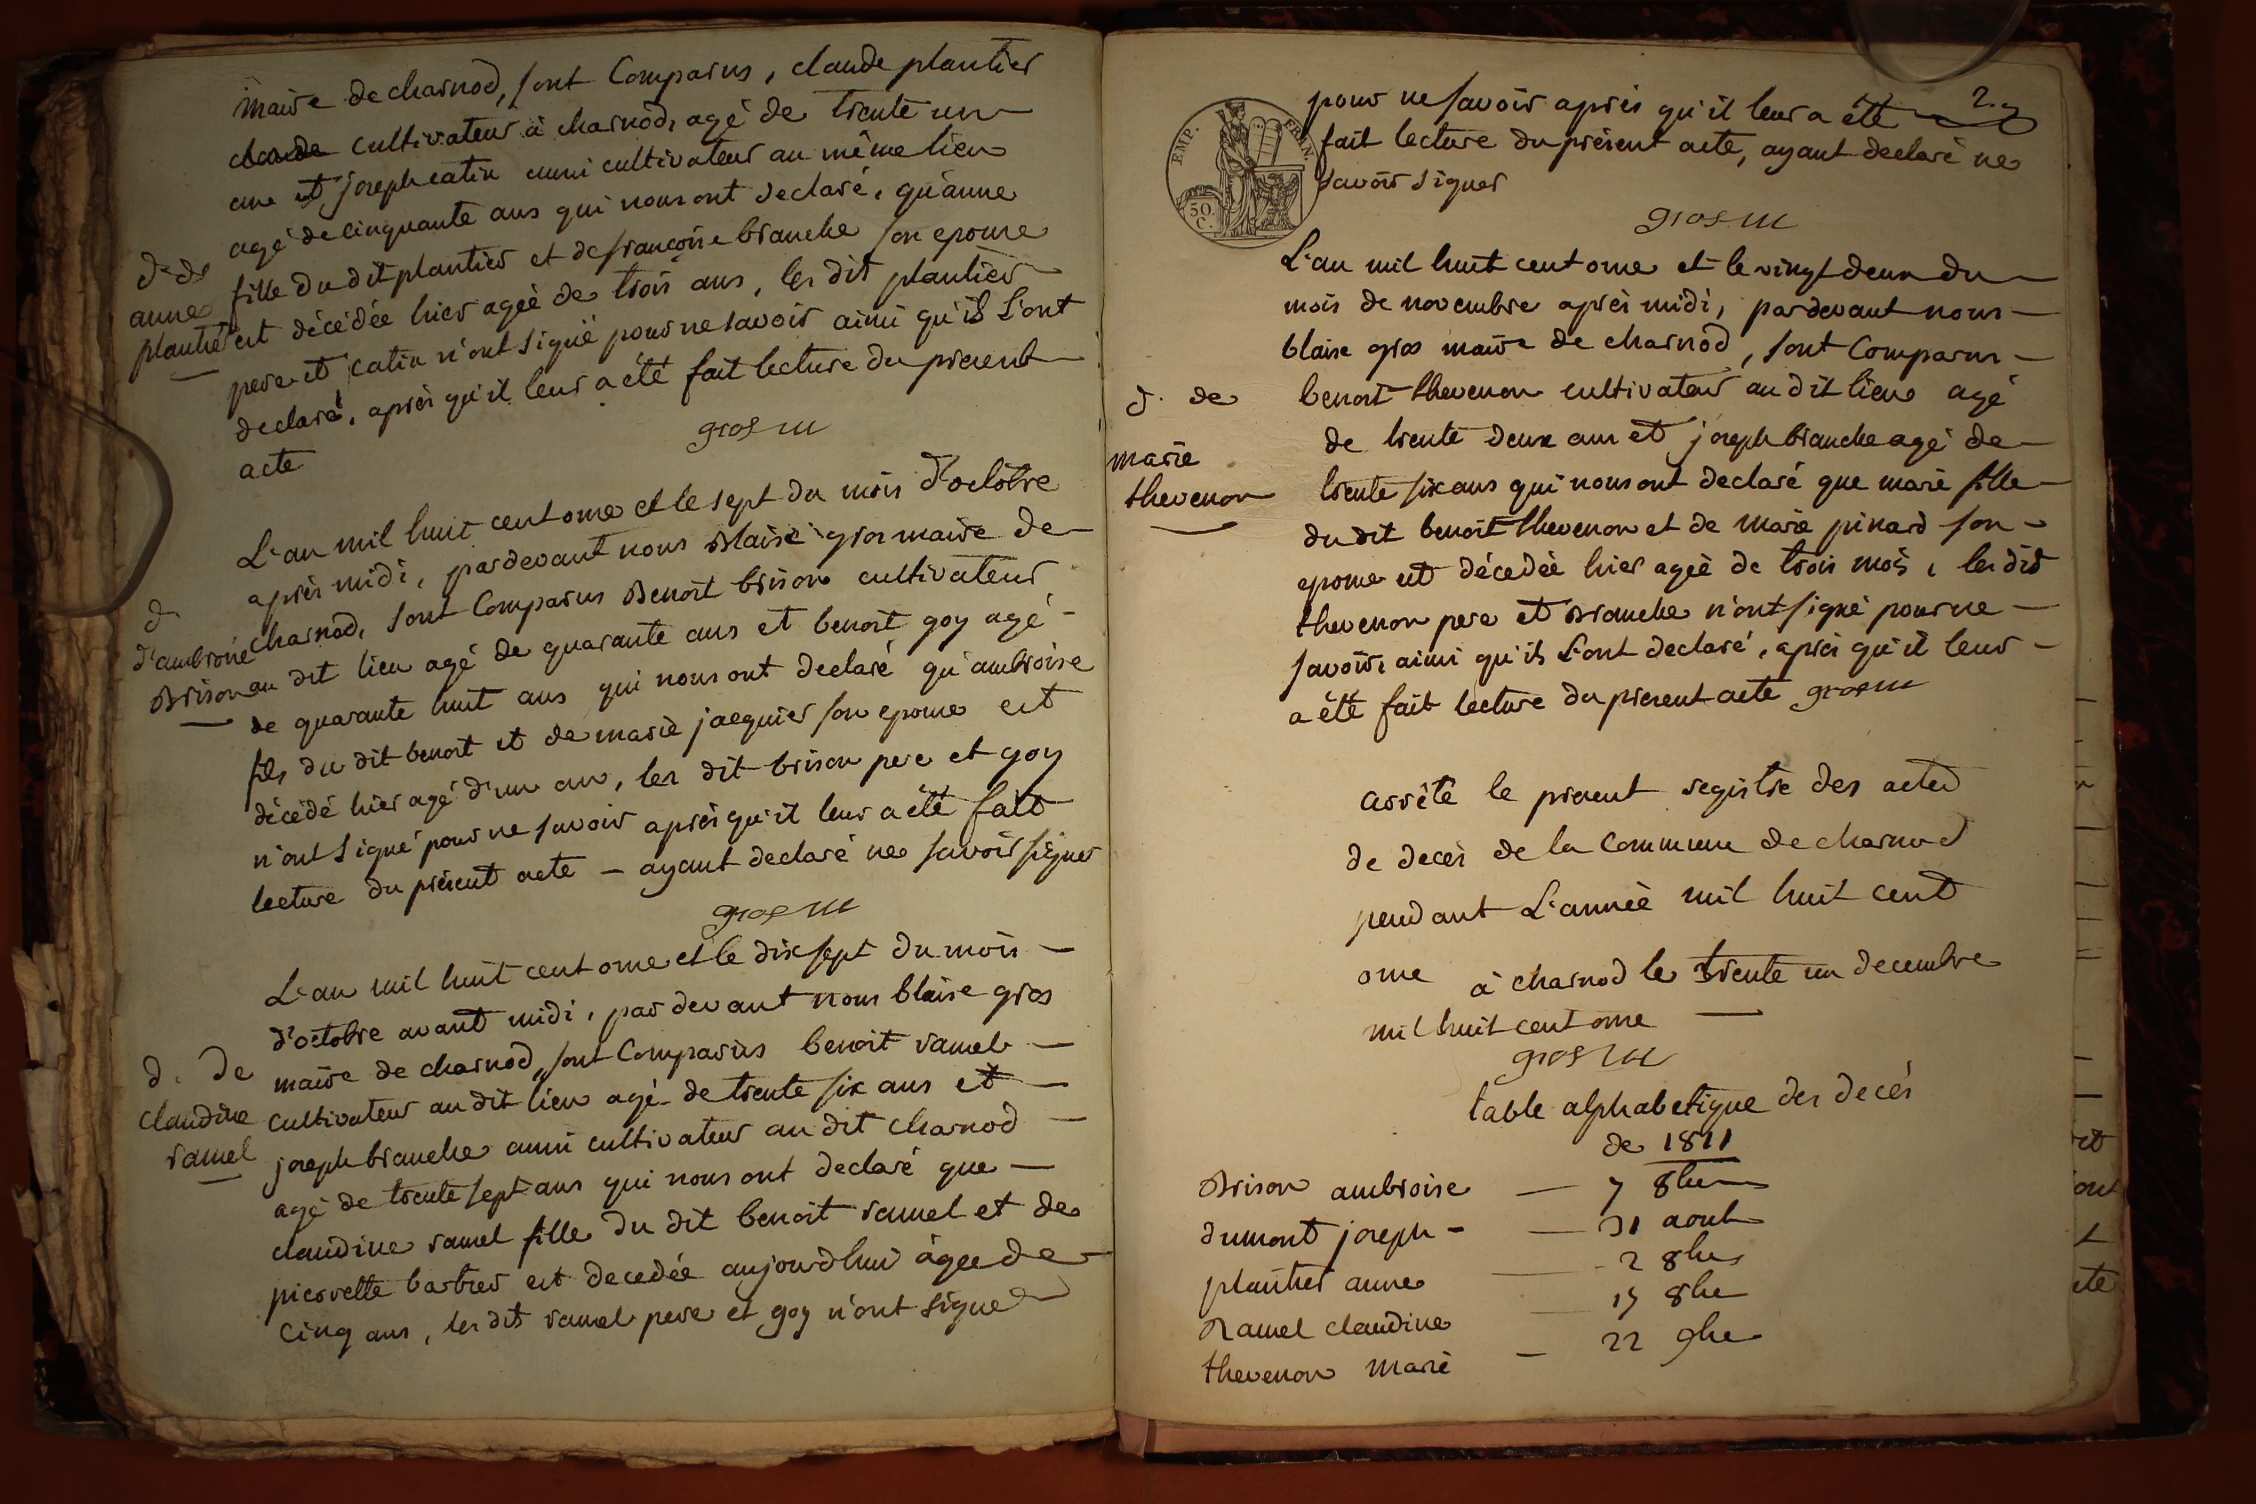 maire de charnod, sont Comparus, claude plantier
claude cultivateur à charnod, agé de trente un
ans et joseph catin aussi cultivateur au même lieu
agé de cinquante ans qui nous ont declaré, qu'anne
fille du dit plantier et de francoise branche son epouse
est décédée hier agée de trois ans, les dit plantier
pere et catin n'ont signé pour ne savoir ainsi qu'ils l'ont
declaré, après qu'il leur a été fait lecture du present
acte
gros m
d. de
anne
plantier
L'an mil huit cent onze et le sept du mois d'octobre
après midi, pardevant nous Blaise gros maire de
charnod, sont Comparus Benoit brison cultivateur
au dit lieu agé de quarante ans et benoit goy agé
de quarante huit ans qui nous ont declaré qu'ambroise
fils du dit benoit et de marie jacquier son epouse est
décédé hier agé d'un an, les dit brison pere et goy
n'ont signé pour ne savoir après qu'il leur a été fait
lecture du présent acte – ayant declaré ne savoir signer
gros m
d.
d'ambroise
Brison
L'an mil huit cent onze et le dix sept du mois
d'octobre avant midi, par devant nous blaise gros
maire de charnod, sont Comparus benoit ramel
cultivateur au dit lieu agé de trente six ans et
joseph branche aussi cultivateur au dit charnod
agé de trente sept ans qui nous ont declaré que
claudine ramel fille du dit benoit ramel et de
pierrette barbier est decedée aujourdhui âgée de
cinq ans, les dits ramel pere et goy n'ont signé
d. de
claudine
ramel
2.
EMP. FRAN.
50. C.
pour ne savoir après qu'il leur a été
fait lecture du présent acte, ayant declaré ne
savoir signer
gros m
L'an mil huit cent onze et le vingt deux du
mois de novembre après midi, pardevant nous
blaise gros maire de charnod, sont Comparus
benoit thevenon cultivateur au dit lieu agé
de trente deux ans et joseph branche agé de
trente six ans qui nous ont declaré que marie fille
du dit benoit thevenon et de marie pinard son
epouse est décedée hier agée de trois mois, les dits
thevenon pere et Branche n'ont signé pour ne
savoir, ainsi qu'ils l'ont declaré, après qu'il leur
a été fait lecture du present acte gros m
d. de
marie
thevenon
arrêté le present registre des actes
de decès de la Commune de charnod
pendant L'année mil huit cent
onze à charnod le trente un decembre
mil huit cent onze
gros m
table alphabetique des decés
de 1811
Brison ambroise — 7 8bre
dumont joseph — 31 aout
plantier anne — 2 8bre
Ramel claudine — 17 8bre
thevenon marie — 22 9bre